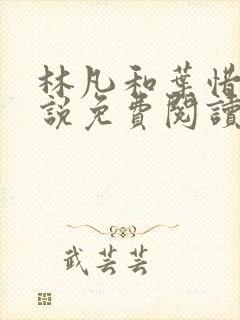 林凡和葉惜
說免費閱讀
武芸芸